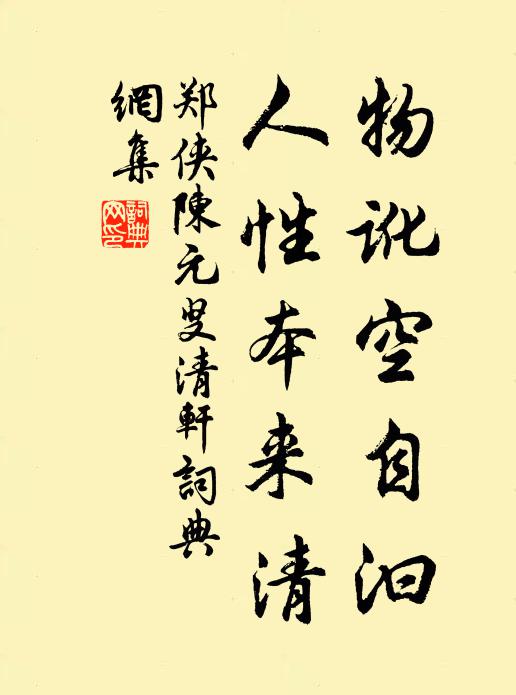 物讹空自汩
人性本来清
郑侠陳元叟清軒詞典
網集
詞典網印